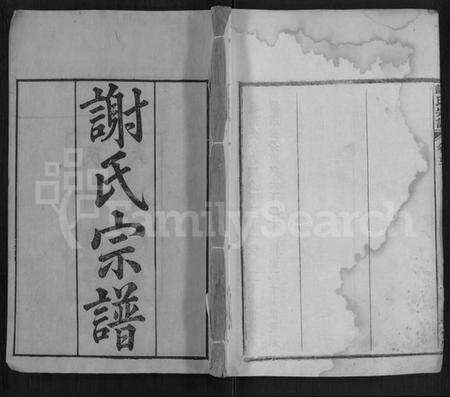 謝氏宗譜
FamilySearch